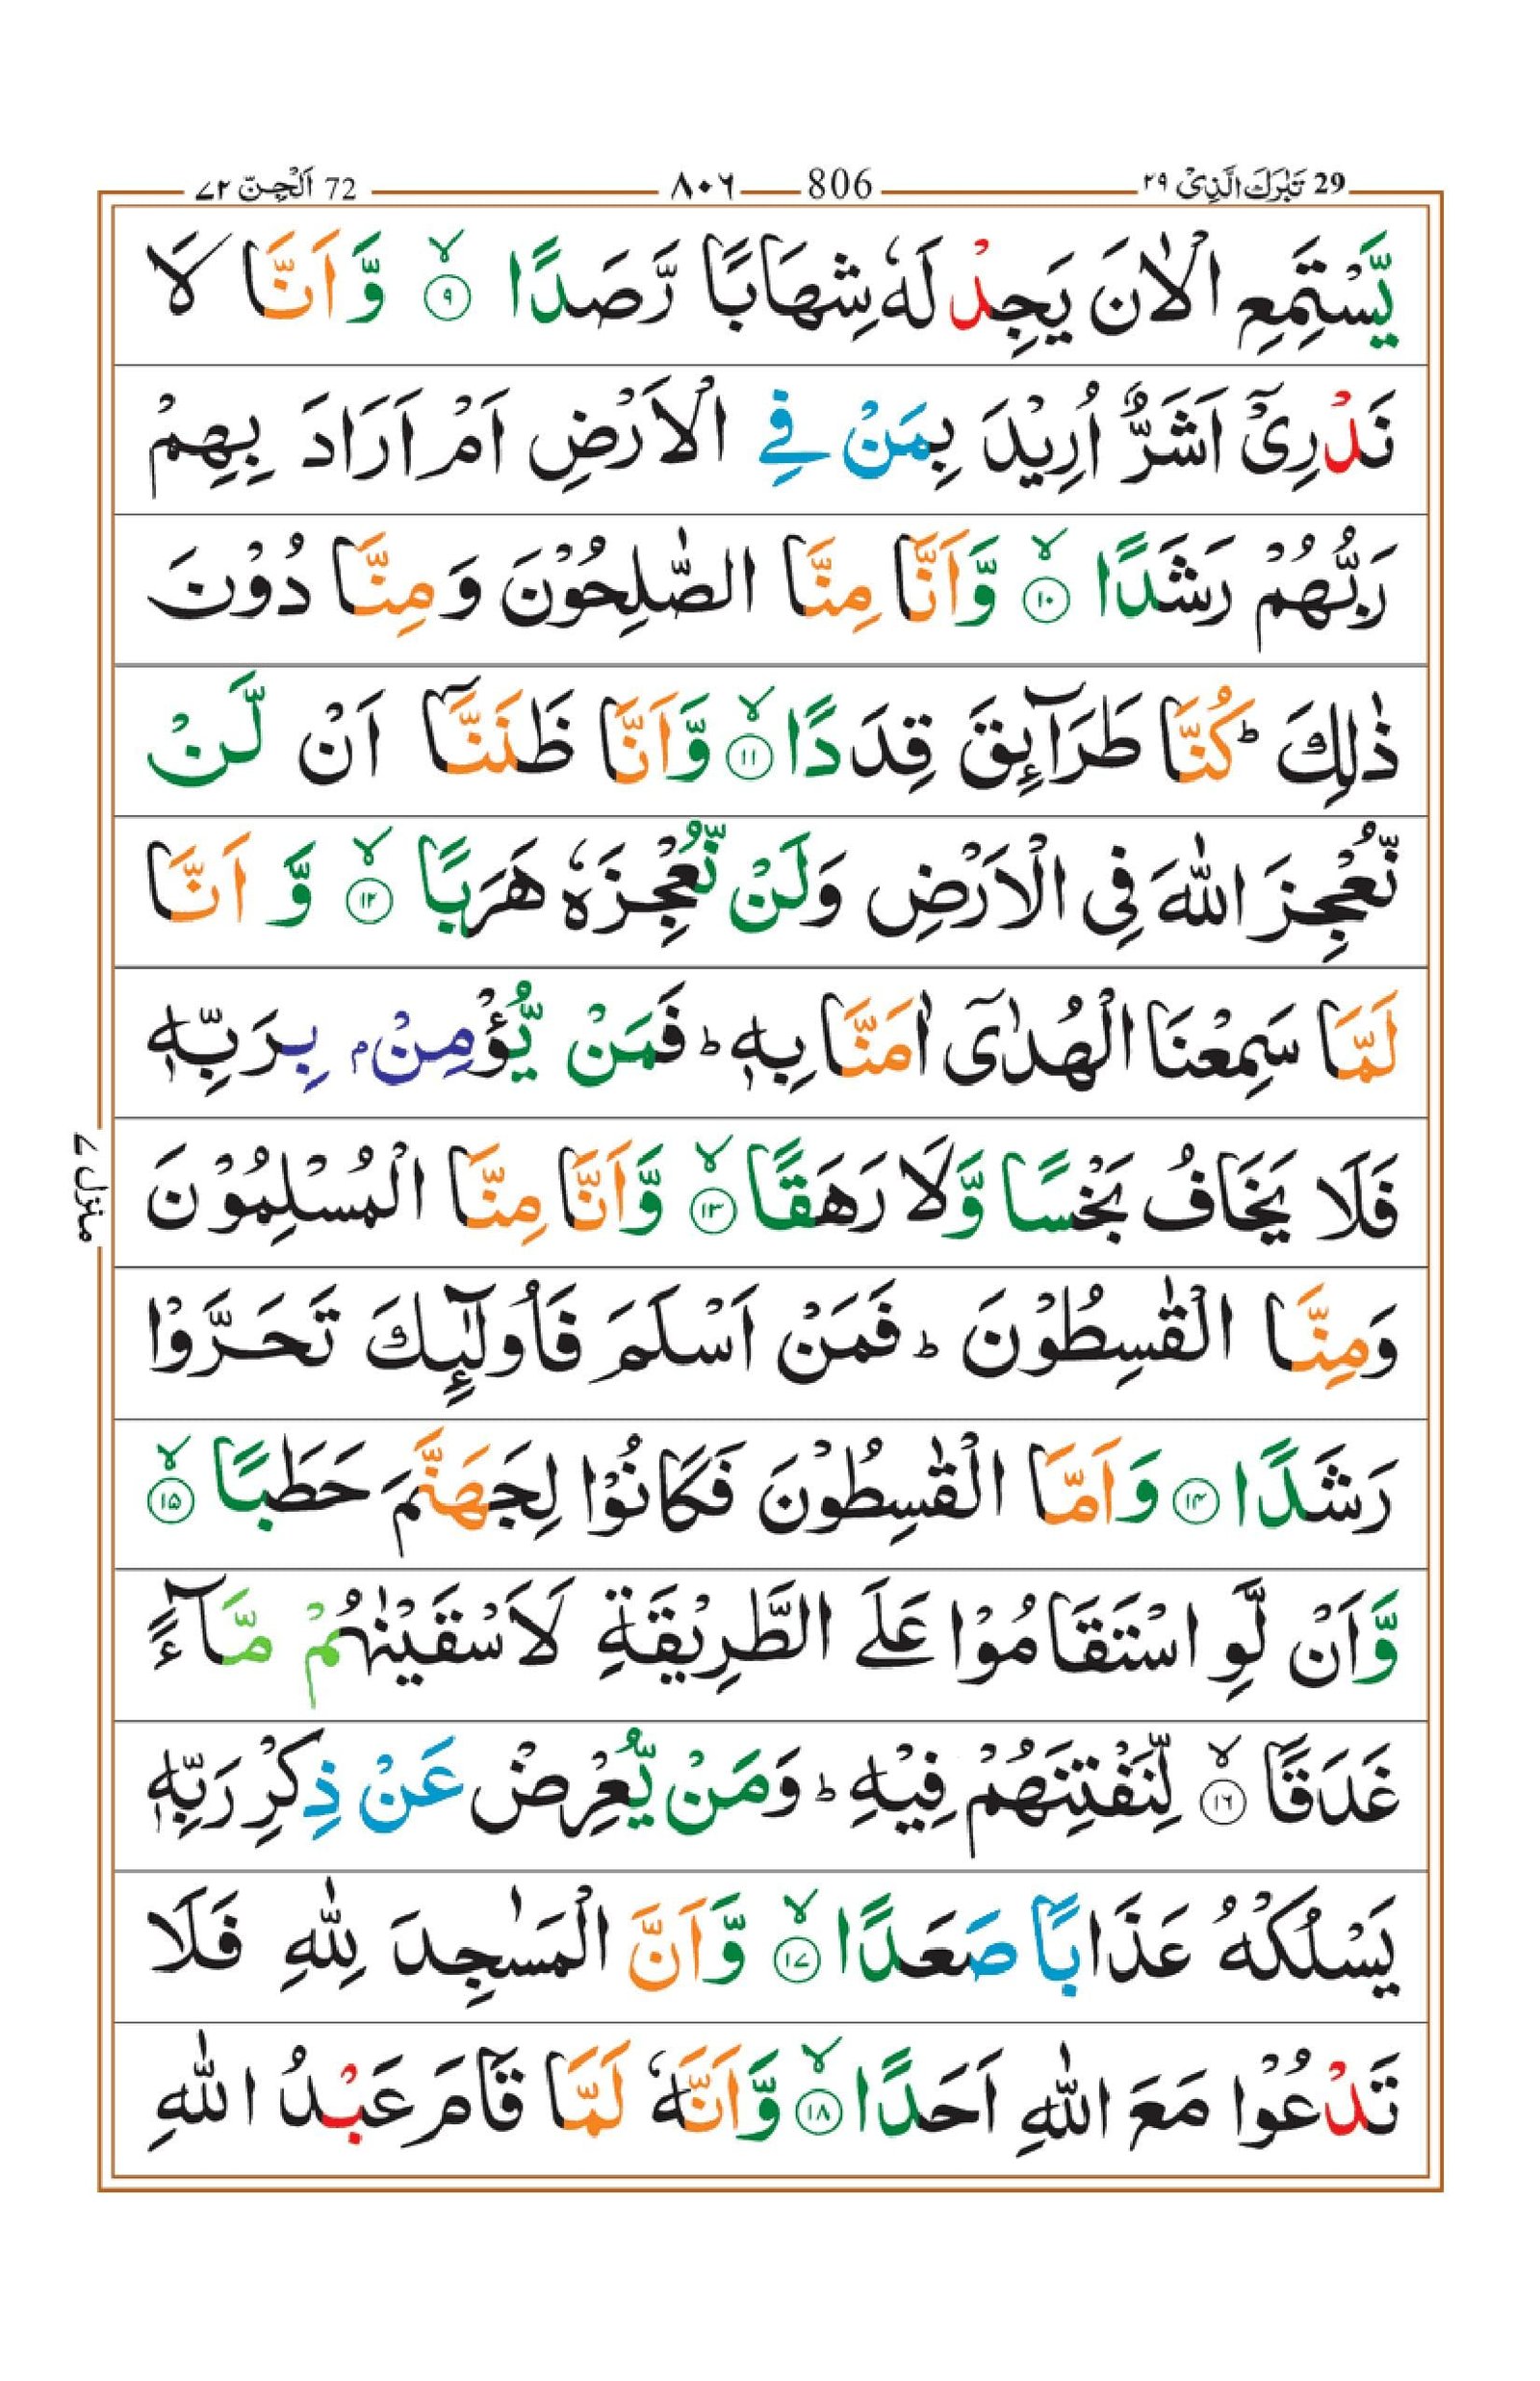 29 تَبٰرَكَ الَّذِیْ ٢٩
806 ٨٠٦
72 اَلْجِنّ ٧٢
یَّسْتَمِعِ الْاٰنَ یَجِدْ لَهٗ شِهَابًا رَّصَدًا ۙ‏﴿۹﴾ وَّ اَنَّا لَا
نَدْرِیْۤ اَشَرٌّ اُرِیْدَ بِمَنْ فِی الْاَرْضِ اَمْ اَرَادَ بِهِمْ
رَبُّهُمْ رَشَدًا ۙ﴿۱۰﴾ وَّاَنَّا مِنَّا الصّٰلِحُوْنَ وَمِنَّا دُوْنَ
ذٰلِكَ ؕ كُنَّا طَرَآئِقَ قِدَدًا ۙ﴿۱۱﴾ وَّاَنَّا ظَنَنَّاۤ اَنْ لَّنْ
نُّعْجِزَ اللّٰهَ فِی الْاَرْضِ وَلَنْ نُّعْجِزَهٗ هَرَبًا ۙ﴿۱۲﴾ وَّ اَنَّا
لَمَّا سَمِعْنَا الْهُدٰۤی اٰمَنَّا بِهٖ ؕ فَمَنْ یُّؤْمِنْۢ بِرَبِّهٖ
فَلَا یَخَافُ بَخْسًا وَّلَا رَهَقًا ۙ﴿۱۳﴾ وَّاَنَّا مِنَّا الْمُسْلِمُوْنَ
وَمِنَّا الْقٰسِطُوْنَ ؕ فَمَنْ اَسْلَمَ فَاُولٰٓئِكَ تَحَرَّوْا
رَشَدًا ﴿۱۴﴾ وَاَمَّا الْقٰسِطُوْنَ فَكَانُوْا لِجَهَنَّمَ حَطَبًا ۙ﴿۱۵﴾
وَّاَنْ لَّوِ اسْتَقَامُوْا عَلَی الطَّرِیْقَةِ لَاَسْقَیْنٰهُمْ مَّآءً
غَدَقًا ۙ﴿۱۶﴾ لِّنَفْتِنَهُمْ فِیْهِ ؕ وَمَنْ یُّعْرِضْ عَنْ ذِكْرِ رَبِّهٖ
یَسْلُكْهُ عَذَابًا صَعَدًا ۙ﴿۱۷﴾ وَّاَنَّ الْمَسٰجِدَ لِلّٰهِ فَلَا
تَدْعُوْا مَعَ اللّٰهِ اَحَدًا ۙ﴿۱۸﴾ وَّاَنَّهٗ لَمَّا قَامَ عَبْدُ اللّٰهِ
منزل ٧